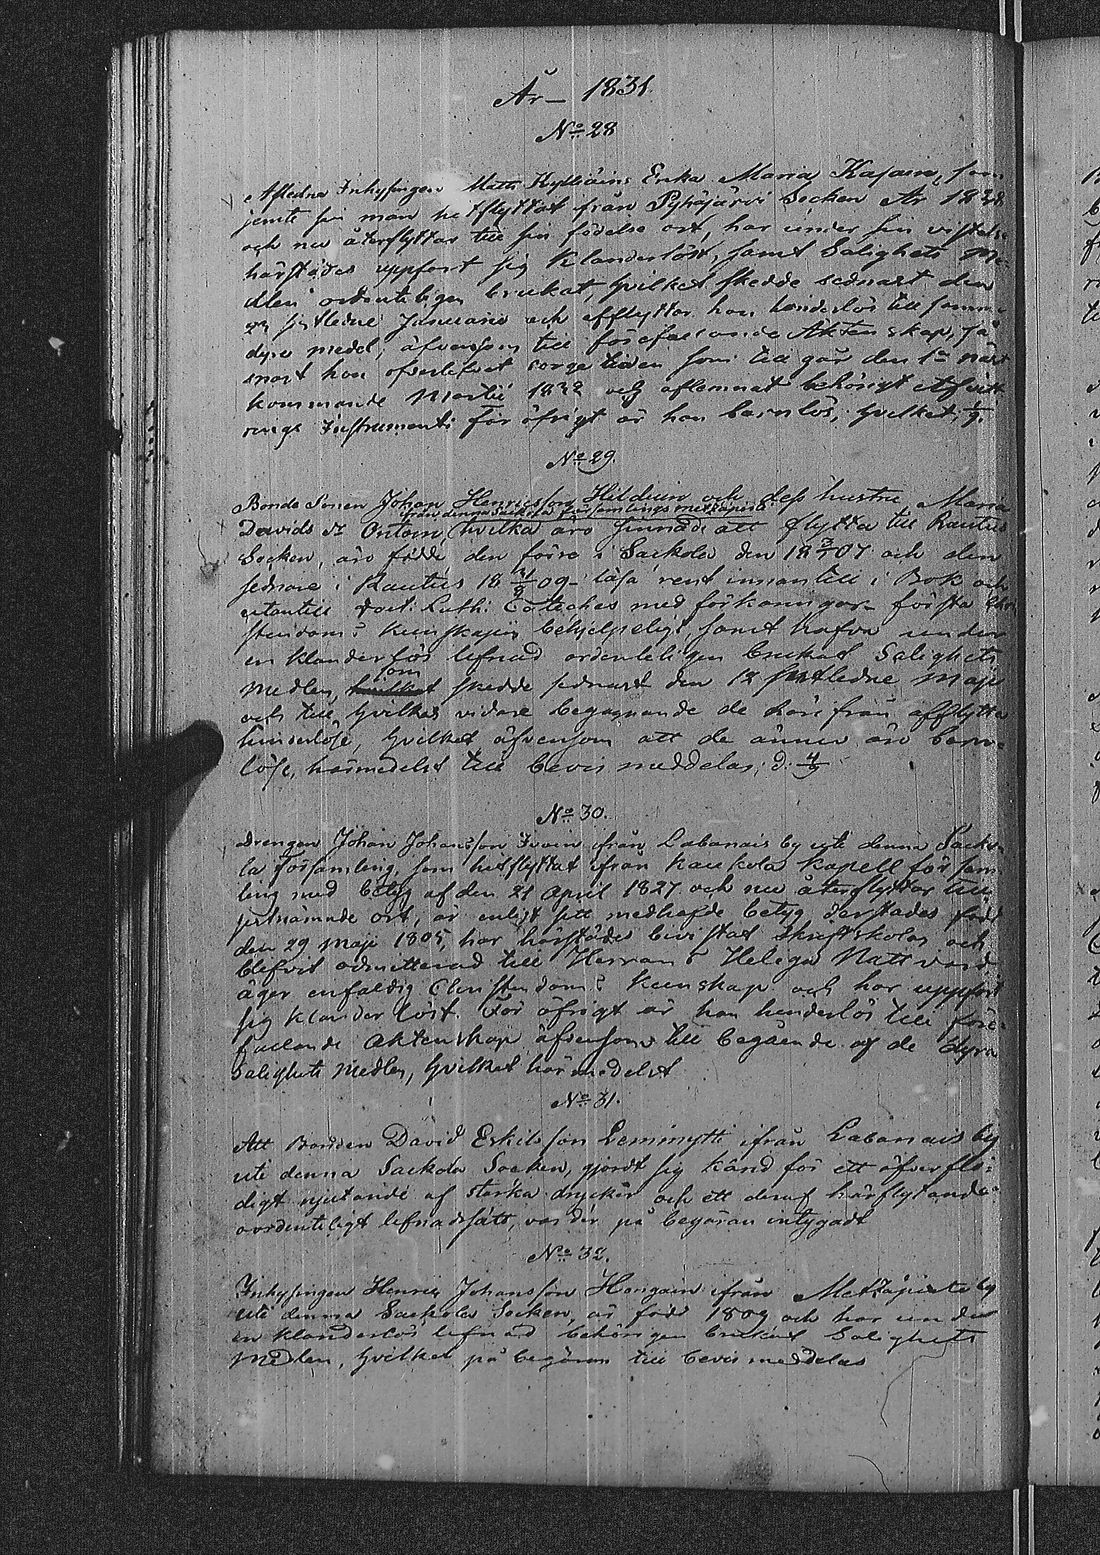 År 1831.
No 28
Afledne Inhysingen Matts Kylliäins Enka Maria Kajain, som
jemte sin man hitflyttat från Pyhäjärvi Socken År 
och nu återflyttar till sin födelse ort, har under sin vistelse
härstädes uppfört sig klanderlöst, samt Salighets Me-
dlen ordenteligen brukat, hvilket skedde sednast den
 sistledne Januarii och afflyttar hon hinderlös till samma
dyra medel, äfvensom till förefallande Äktenskap, så
snart hon öfverlefvat sorge tiden som till går den 1 näst
kommande Martii 1832 och aflemnat behörigt Afvitt-
rings Instrument: för öfrigt är hon barnlös, hvilket
No 29.
Bonde Sonen Johan Henricsson Hildein och dess hustru Maria
från denna Sackola församlings
Davids dr Ontoin hvilka äro sinnade att flytta till Rautus
Socken, äro födde den förre i Sackola den 18 07 och den
sednare i Rautus 18 09 läsa rent innantill i Bok och
utantill Doct: Luth: Cateches med förklaringar första Chri-
stendoms kunskapen behjelpeligt, samt hafva under
en klanderlös lefnad ordenteligen brukat Salighets
som
Medlen, skedde sednast den 12 sistledne Maji
och till hvilkas vidare begagnande de härifrån afflytta
hinderlöse, hvilket äfvensom att de ännu äro barn-
löse, härmedelst till bevis meddelas; d.
No 30.
Drengen Johan Johansson Ivain ifrån Labanais by uti denna Sacko-
la Församling, som hitflyttat ifrån Kaukola Kapell försam-
ling med betyg af den 21 April 1827 och nu återflyttar till
sistnämnde ort, är enligt sitt medhafde betyg derstädes född
den 29 Maji 1805, har härstädes bivistat Skriftskolor och
blifvit admitterad till Herrans Heliga Nattvard
äger enfaldig Christendoms kunskap och har uppfört
sig klanderlöst. För öfrigt är han hinderlös till före-
fallande Äktenskap äfvensom till begående af de dyra
Salighets Medlen, hvilket härmedelst
No 31.
Att Bonden David Eskilsson Leminytti ifrån Labanais by
uti denna Sackola Socken, gjordt sig känd för ett öfverflö-
digt njutande af starka drycker och ett deraf härflytande
oordenteligt lefnadssätt, varder på begäran intygadt
No 32.
Inhysingen Henric Johansson Hangain ifrån by
uti denna Sackola Socken, är född 1809 och har under
en klanderlös lefnad behörigen brukat Salighets
Medlen, hvilket på begäran till bevis meddelas